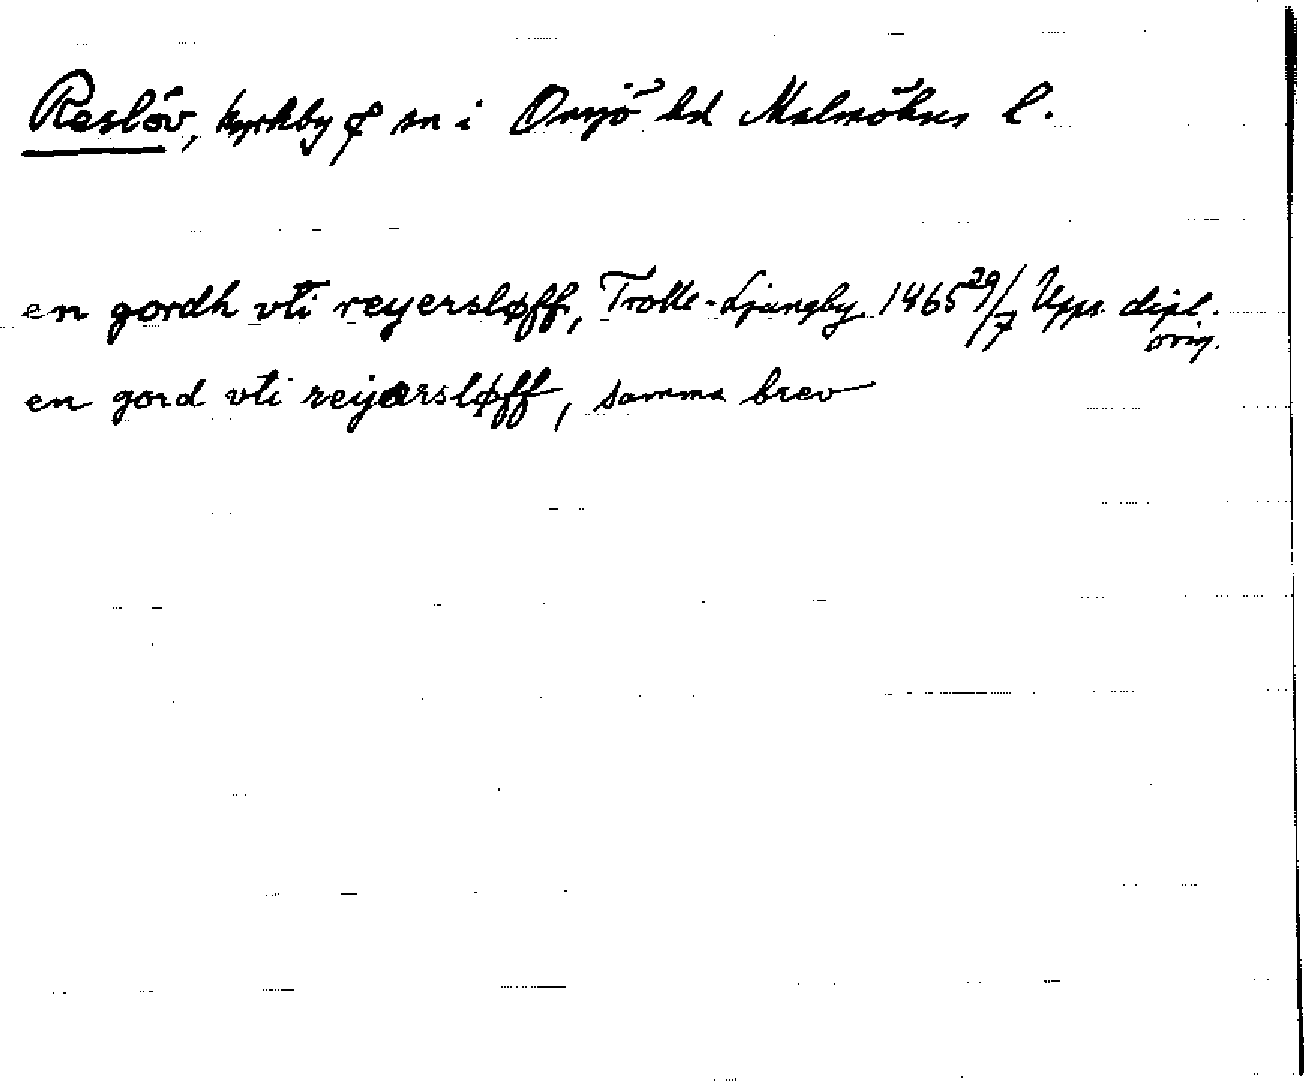 Reslöv, kyrkby o sn i Onsjö hd Malmöhus l.
en gordh vti reyersløff, Trolle-Ljungby 1465 29/7 Upps. dipl.
orig.
en gord vti reyersløff, samma brev